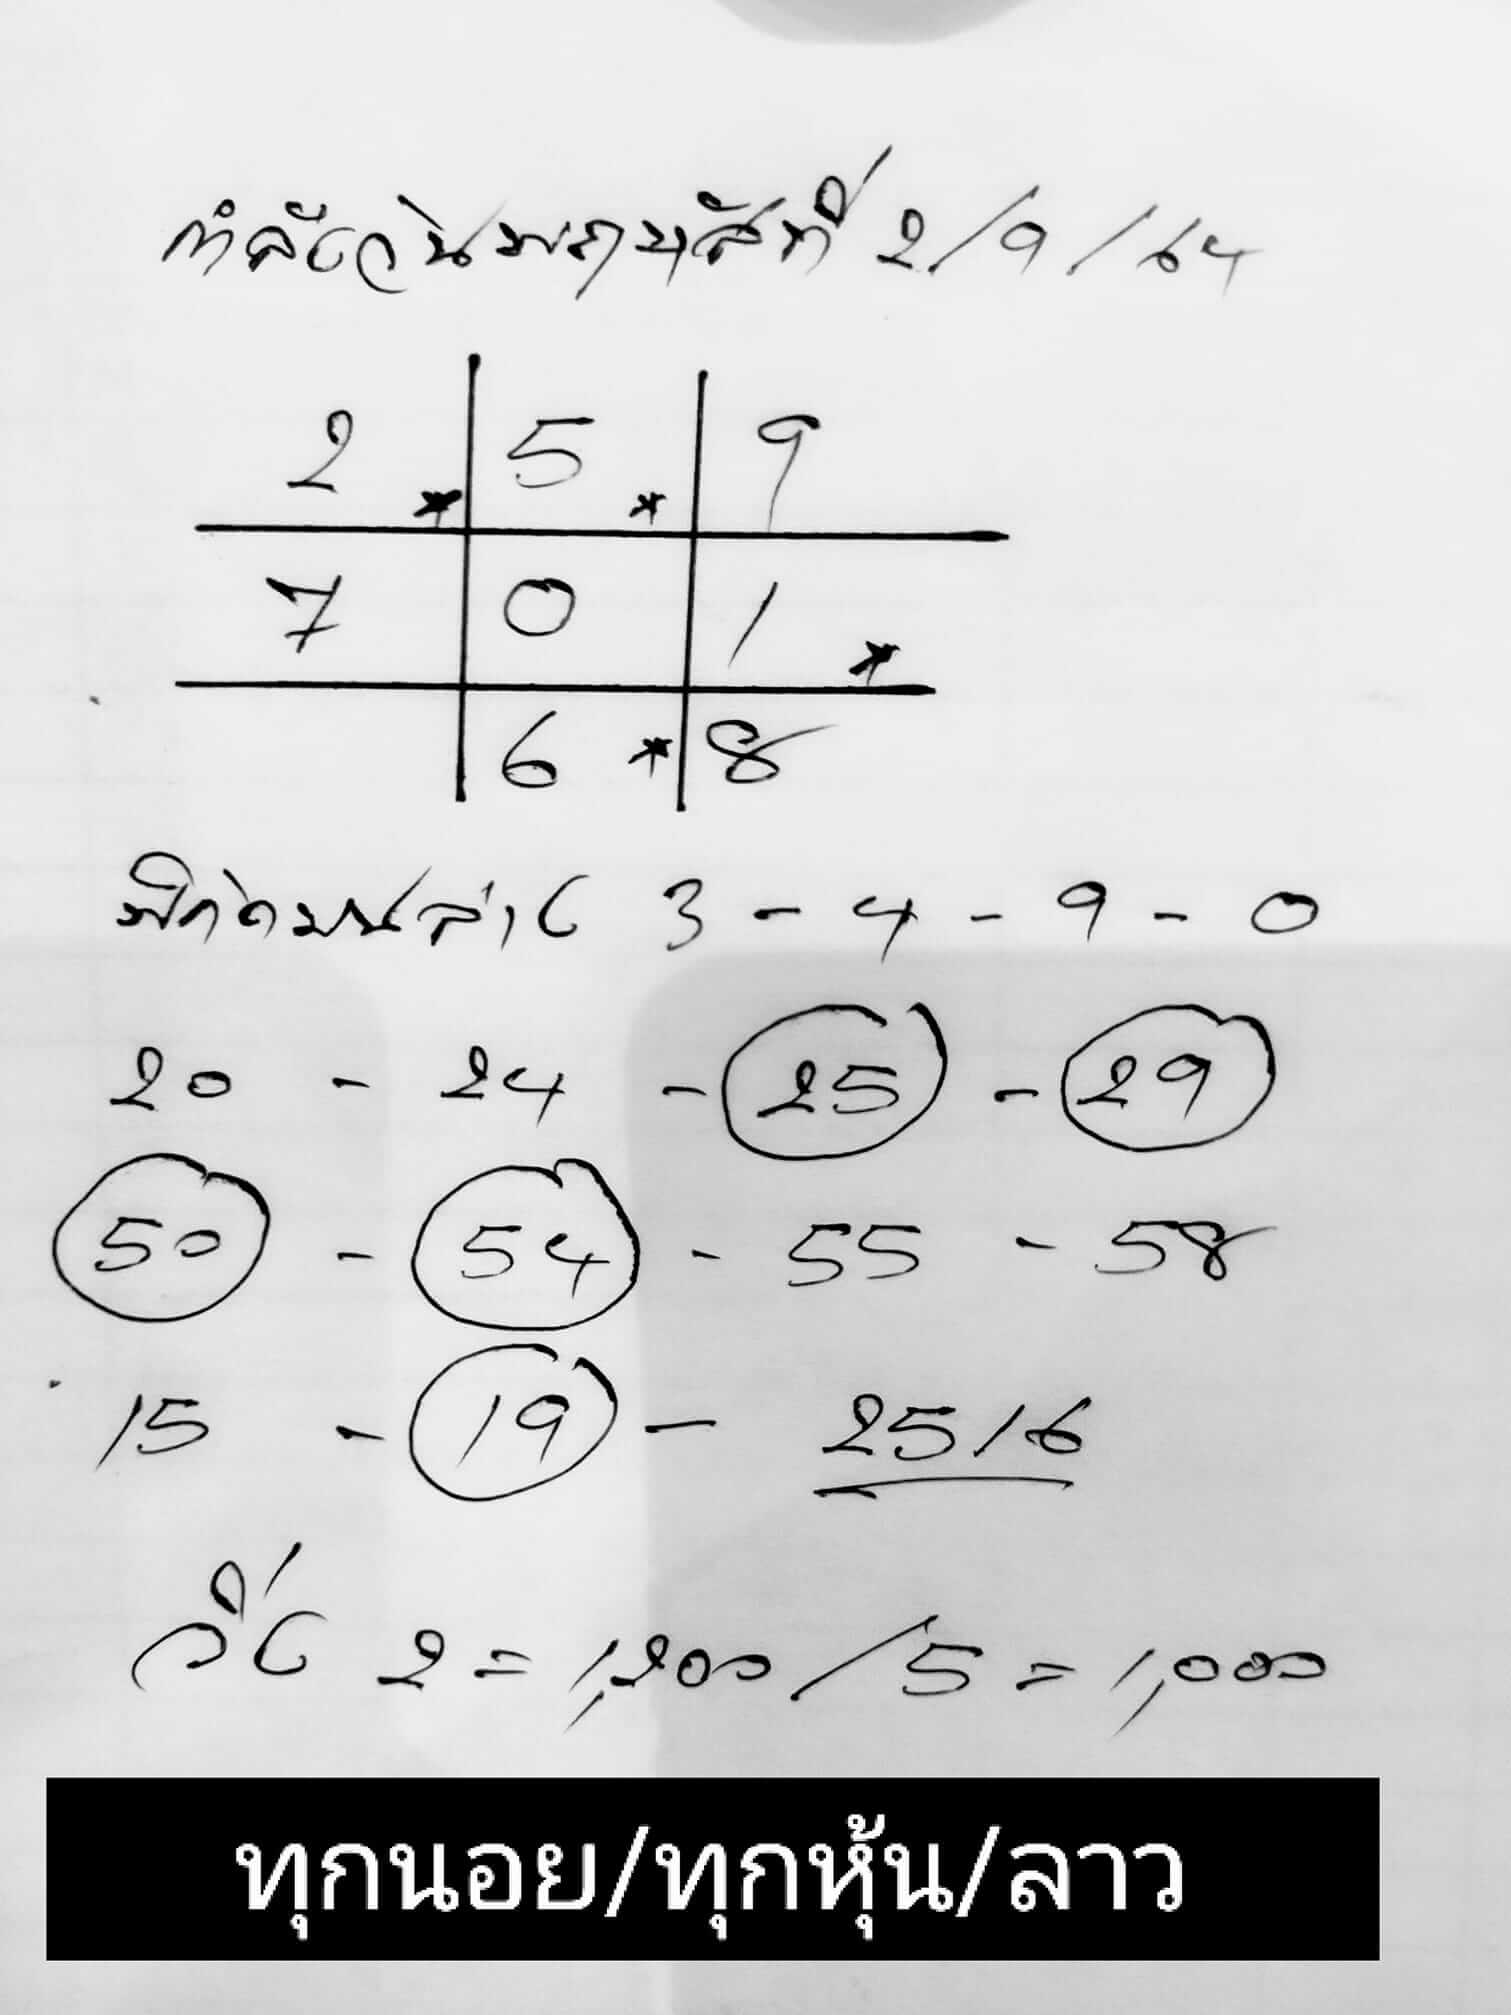 กำลังวันพฤหัสที่ 2/9/64
2 * 5 * 9
7 0 1 *
6 * 8
พิกัดบนล่าง 3 - 4 - 9 - 0
20 - 24 - 25 - 29
50 - 54 - 55 - 58
15 - 19 - 2516
วิ่ง 2 = 1,200 / 5 = 1,000
ทุกนอย/ทุกหุ้น/ลาว